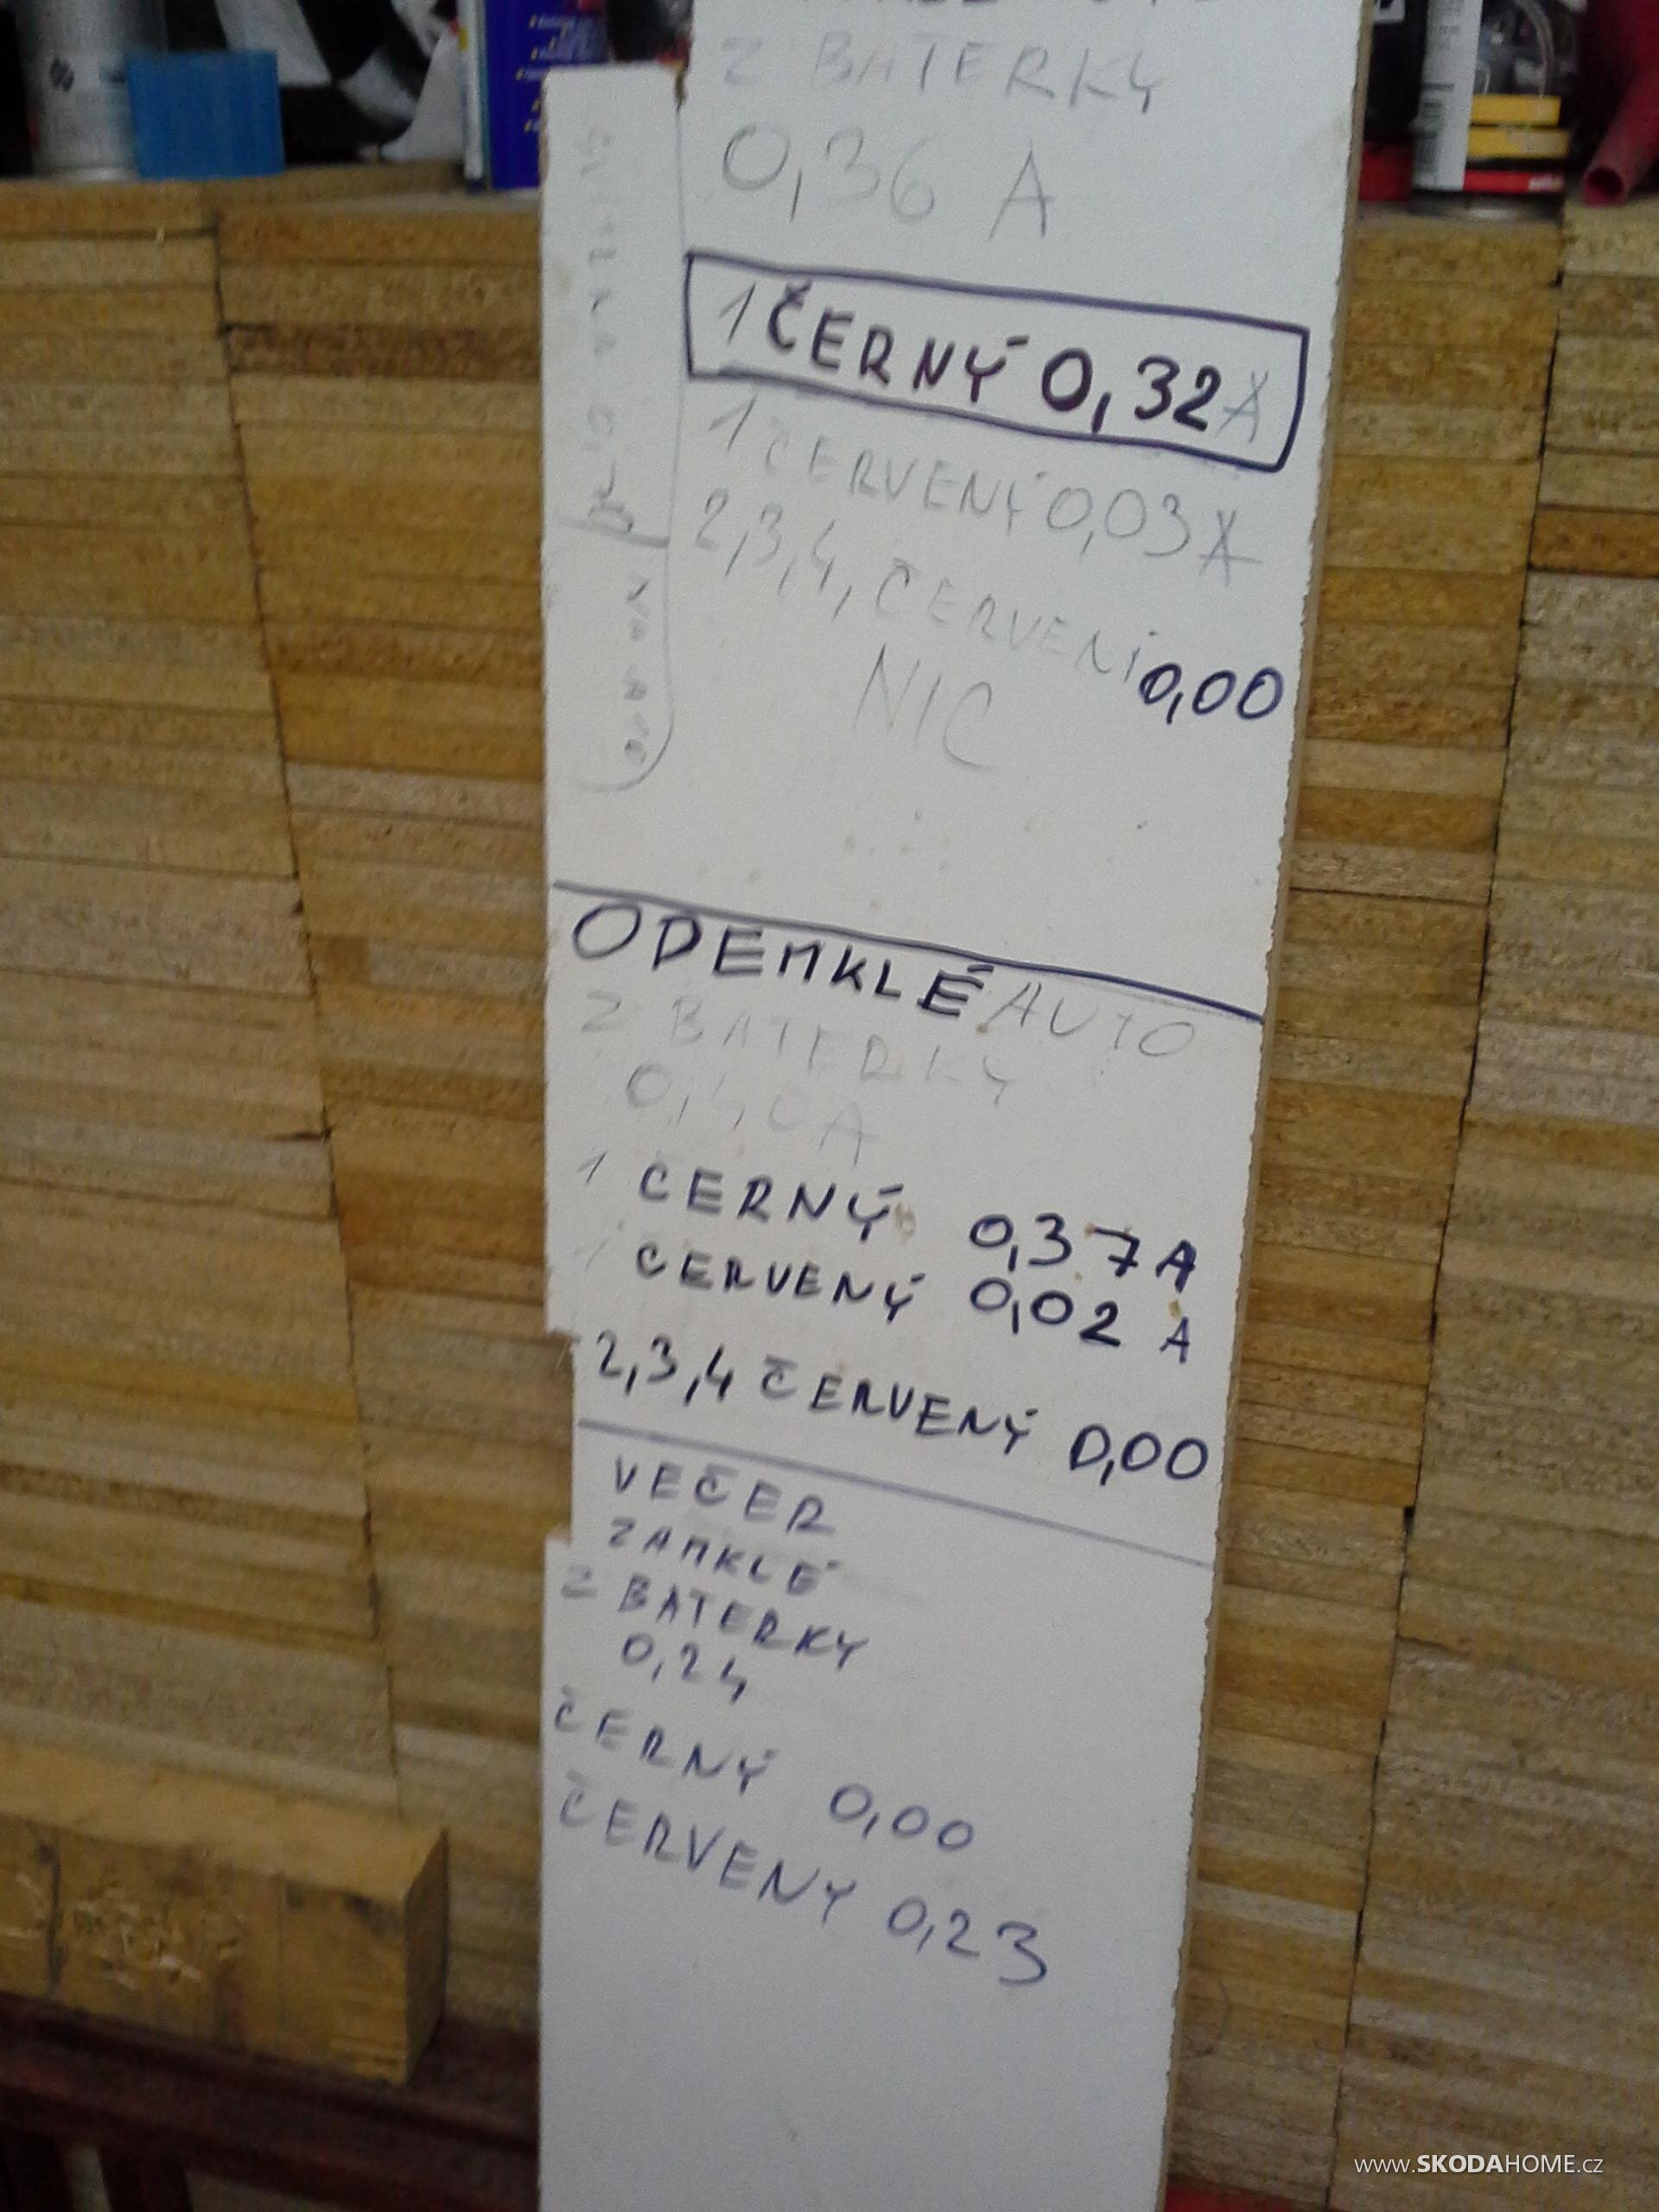 Z BATERKY
0,36 A
1 ČERNÝ 0,32A
1 ČERVENÝ 0,03 A
2,3,4, ČERVENÍ 0,00
NIC
ODEMKLÉ AUTO
Z BATERKY
0,40A
1 CERNÝ 0,37A
1 CERVENÝ 0,02 A
2,3,4 ČERVENÝ 0,00
VEČER
ZAMKLÉ
Z BATERKY
0,24
ČERNÝ 0,00
ČERVENY 0,23
www.SKODAHOME.cz